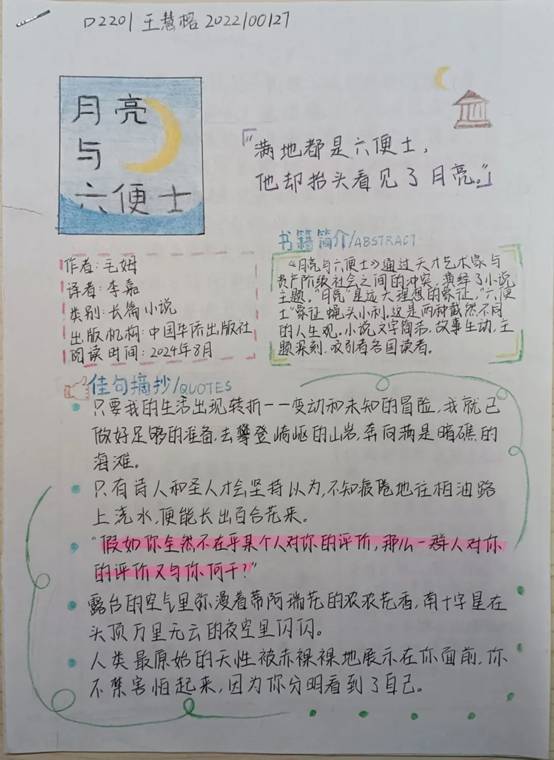 D2201 王慧榕 2022100127
月亮
与
六便士
『"满地都是六便士，
他却抬头看见了月亮。"』
作者：毛姆
译者：李嘉
类别：长篇小说
出版机构：中国华侨出版社
阅读时间：2024年8月
书籍简介/ABSTRACT
《月亮与六便士》通过天才艺术家与
资产阶级社会之间的冲突，演绎了小说
主题。"月亮"是远大理想的象征，"六便
士"象征蝇头小利，这是两种截然不同
的人生观。小说文字简洁，故事生动，主
题深刻，吸引着各国读者。
佳句摘抄/QUOTES
只要我的生活出现转折——变动和未知的冒险，我就已
做好足够的准备，去攀登崎岖的山岩，奔向满是暗礁的
海滩。
只有诗人和圣人才会坚持以为，不知疲倦地往柏油路
上浇水，便能长出百合花来。
"假如你全然不在乎某个人对你的评价，那么一群人对你
的评价又与你何干？"
露台的空气里弥漫着蒂阿瑞花的浓浓花香，南十字星在
头顶万里无云的夜空里闪闪。
人类最原始的天性被赤裸裸地展示在你面前，你
不禁害怕起来，因为你分明看到了自己。